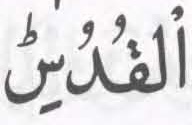 اُلقُدُسِؕ